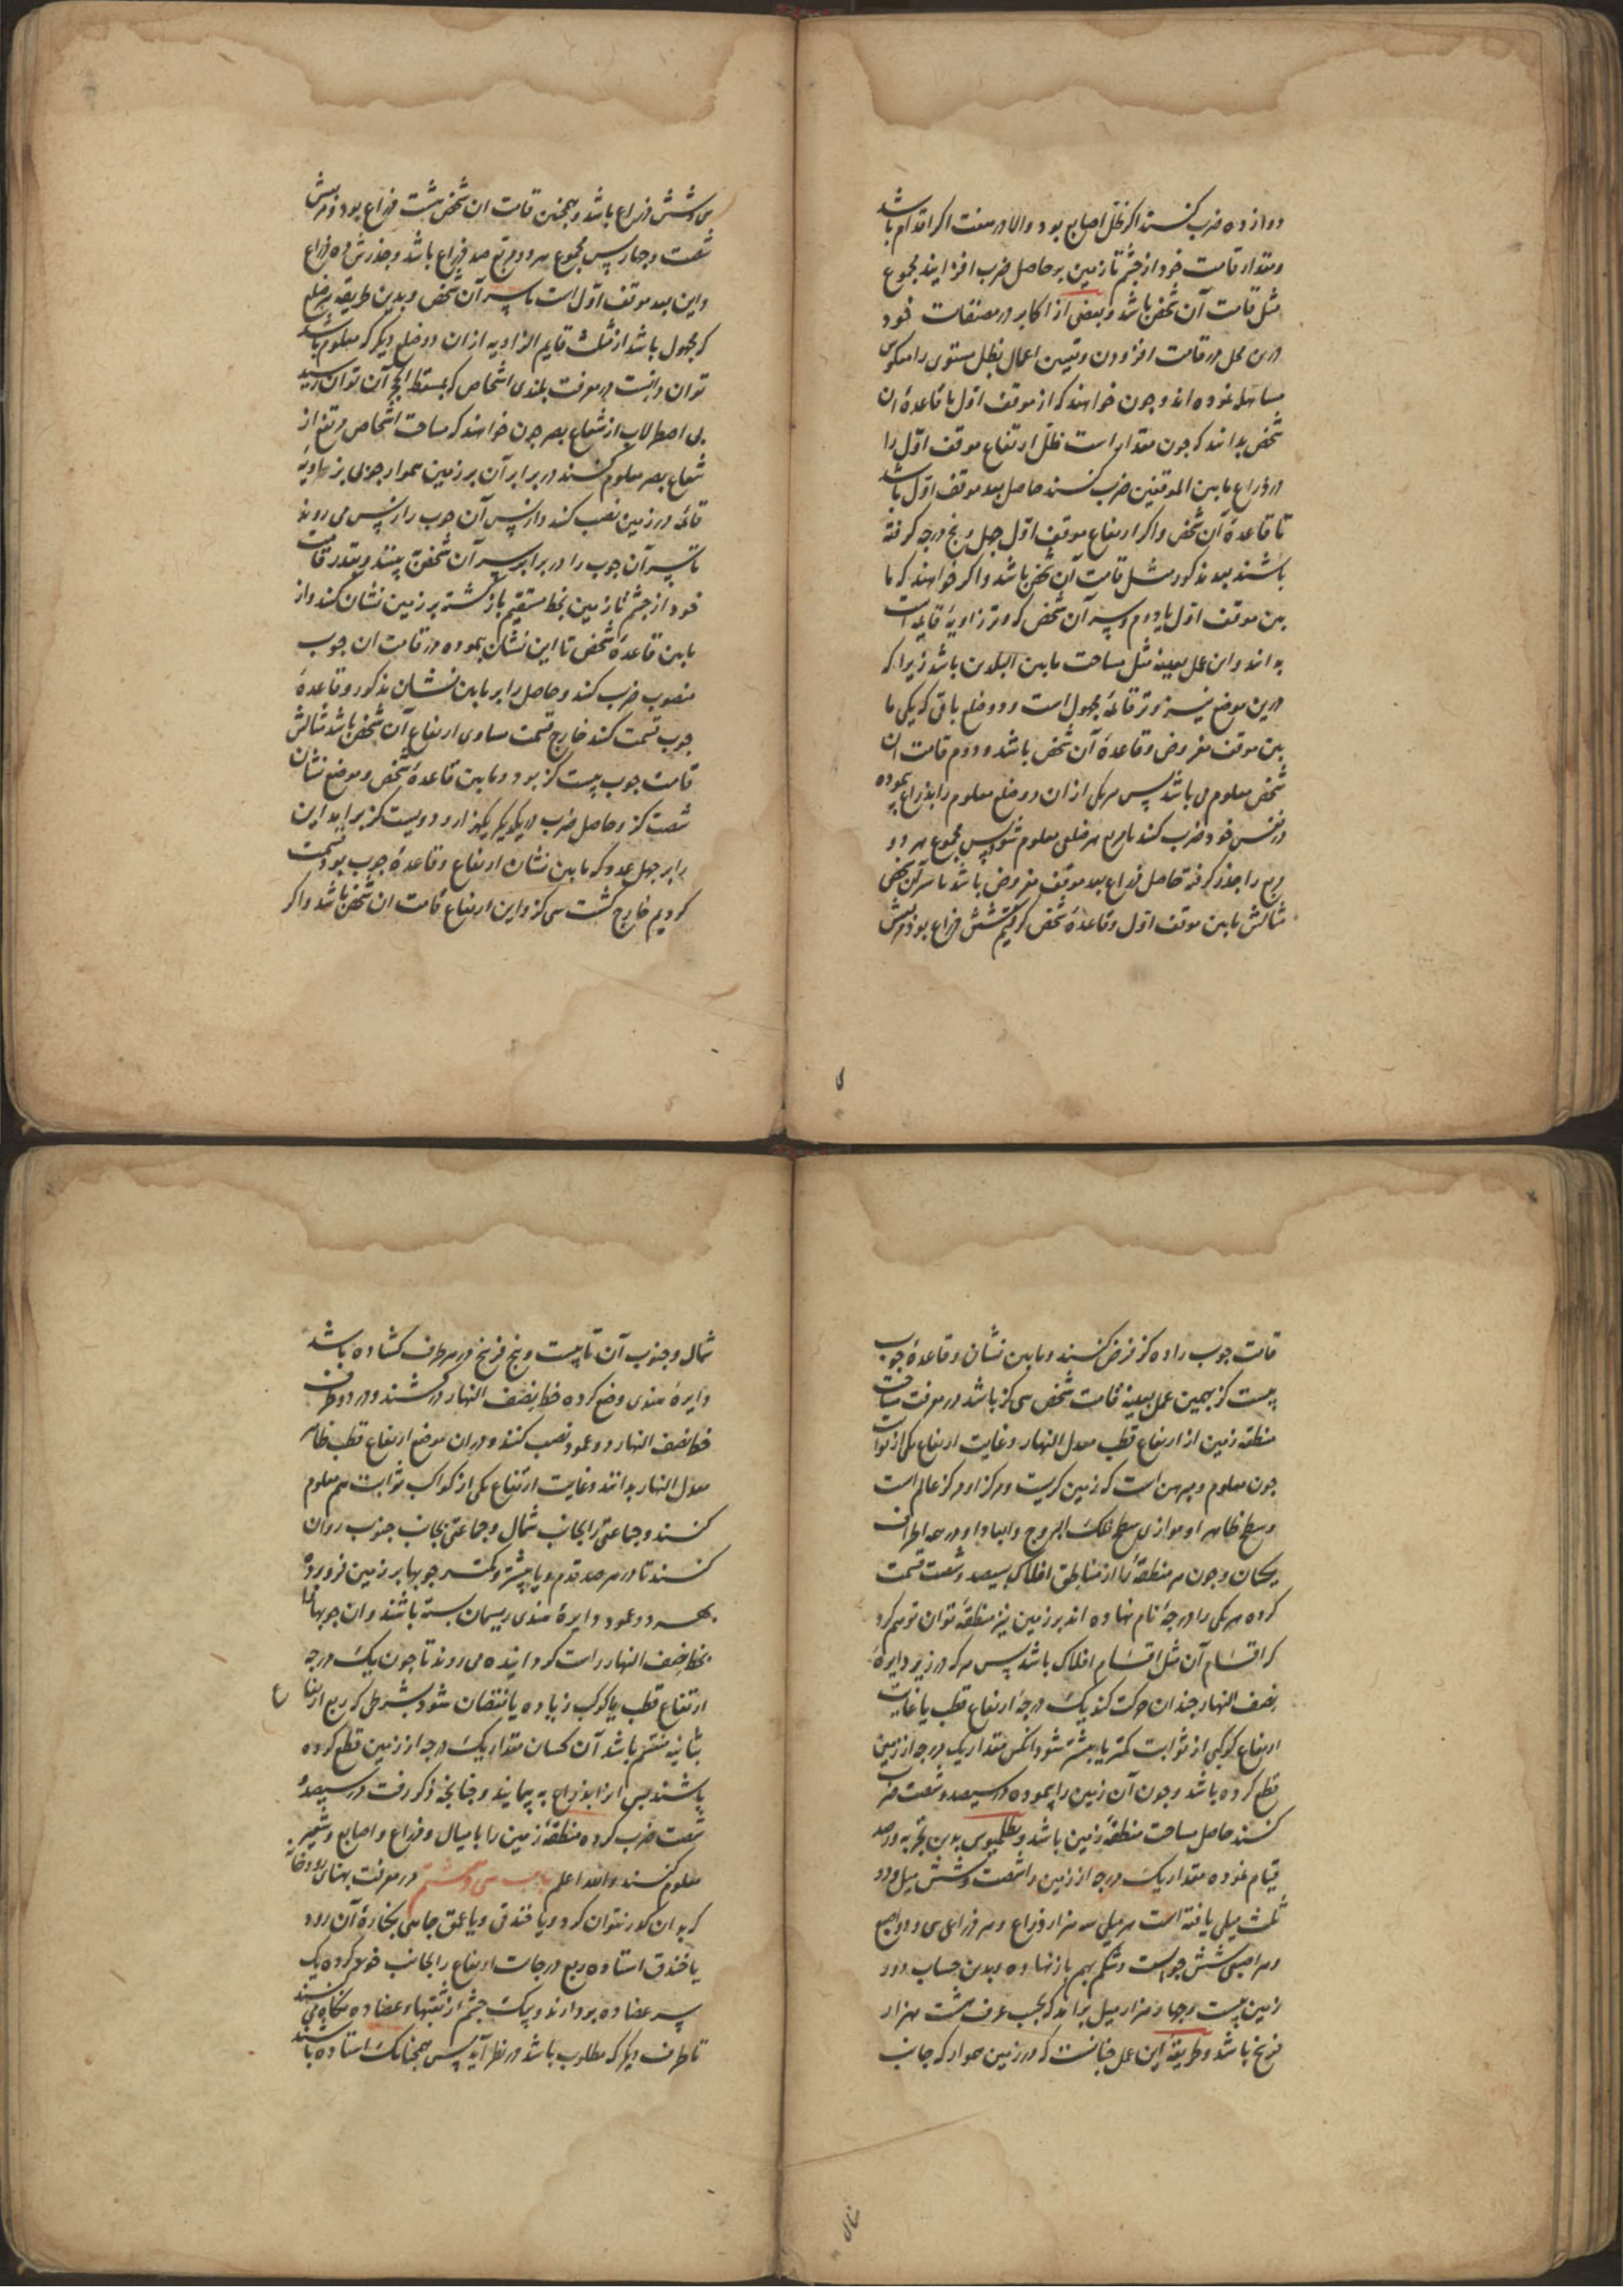 دوازده ضرب کنند اکر ظل اصابع بود والا در هفت اکر اقدام باشد
ومقدار قامت خود از چشم تا زمین بر حاصل ضرب افزایند مجموع
مثل قامت آن شخص باشد وبعضی از اکابر در مصنفات خود
درین محل در قامت افزودن وتبین اعمال بظل مستوی را معکوس
مساهله نموده اند وجون خواهند که از موقف اول با قاعدهٔ ان
شخص بدانند که جون مقدار است ظل ارتفاع موقف اول را
در ذراع مابین الموقفین ضرب کنند حاصل بعد موقف اول باشد
تا قاعدهٔ آن شخص واکر ارتفاع موقف اول جهل وپنج درجه کرفته
باشند بعد مذکور مثل قامت آن شخص باشد واکر خواهند که ما
بین موقف اول یا دوم وسر آن شخص که وتر زاویهٔ قایمه است
بدانند واین عمل بعینه مثل مساحت مابین البلدین باشد زیرا که
درین موضع نیز وتر قائمه مجهول است ودو ضلع باقی که یکی ما
بین موقف مفروض وقاعدهٔ آن شخص باشد ودوم قامت ان
شخص معلوم می باشد پس هر یکی از ان دو ضلع معلوم را بذراع پیموده
در نفس خود ضرب کنند تا مربع هر ضلعی معلوم شود پس مجموع هر دو
مربع را جذر کرفته حاصل ذراع بعد موقف مفروض باشد تا سر آن شخص
مثالش مابین موقف اول وقاعدهٔ شخص کرفتیم شش ذراع بود مربعش
سی وشش ذراع باشد وهمجنین قامت ان شخص هشت ذراع بود ومربعش
شصت وجهار پس مجموع هر دو مربع صد ذراع باشد وجذرش ده ذراع
واین بعد موقف اول است تا سر آن شخص وبدین طریقه هر ضلع
که مجهول باشد از مثلث قایم الزاویه از ان دو ضلع دیکر که معلوم باشد
توان دانست در معرفت بلندی اشخاص که بمسقط الحجر آن توان رسید
بی اصطرلاب از شعاع بصر جون خواهند که مسافت اشخاص مرتفع از
شعاع بصر معلوم کنند در برابر آن بر زمین هموار جوبی بر زاویهٔ
قائمه در زمین نصب کند واز پس آن جوب را از پس می روند
تا سر آن جوب را در برابر سر آن شخص بینند وبقدر قامت
خود از چشم تا زمین بخط مستقیم بازکشته بر زمین نشان کند واز
مابین قاعدهٔ شخص تا این نشان پیموده در قامت ان جوب
منصوب ضرب کند وحاصل را بر مابین نشان مذکور وقاعدهٔ
جوب قسمت کند خارج قسمت مساوی ارتفاع آن شخص باشد مثالش
قامت جوب بیست کز بود ومابین قاعدهٔ شخص وموضع نشان
شصت کز وحاصل ضرب در یکدیکر یکهزار ودویست کز برآید این
را بر جهل عدد که مابین نشان ارتفاع وقاعدهٔ جوب بود قسمت
کردیم خارج کشت سی کز واین ارتفاع قامت ان شخص باشد واکر
قامت جوب را ده کز فرض کنند ومابین نشان وقاعدهٔ جوب
بیست کز بهمین عمل بعینه قامت شخص سی کز باشد در معرفت مساحت
منطقه زمین از ارتفاع قطب معدل النهار وغایت ارتفاع یکی از ثوابت
جون معلوم ومبرهن است که زمین کریست ومرکز او مرکز عالم است
وسطح ظاهر او موازی سطح فلک البروج وابعاد او در همه اطراف
یکسان وجون هر منطقه را از مناطق افلاک بسیصد وشصت قسمت
کرده هر یکی را درجه نام نهاده اند بر زمین نیز منطقه توان توهم کرد
که اقسام آن مثل اقسام افلاک باشد پس هر که در زیر دایرهٔ
نصف النهار جندان حرکت کند یک درجه ارتفاع قطب یا غایت
ارتفاع کوکبی از ثوابت کمتر یا بیشتر شود آنکس مقدار یک درجه از زمین
قطع کرده باشد وجون آن زمین را پیموده در سیصد وشصت ضرب
کنند حاصل مساحت منطقهٔ زمین باشد وبطلمیوس بدین تجربه ورصد
قیام نموده مقدار یک درجه از زمین را شصت وشش میل ودو
ثلث میلی یافته است هر میلی سه هزار ذراع وهر ذراعی سی ودو اصبع
وهر اصبعی شش جو است وشکم بهم باز نهاده وبدین حساب دور
زمین بیست وجهار هزار میل براند که بحسب عرف هشت هزار
فرسخ باشد وطریقهٔ این عمل جنانست که در زمین هموار که جانب
شمال
شمال وجنوب آن تا بیست وپنج فرسخ در هر طرف کشاده باشد
دایرهٔ هندی وضع کرده خط نصف النهار در کشند ودر دو طرف
خط نصف النهار دو عمود نصب کنند ودر ان موضع ارتفاع قطب ظاهر
معدل النهار بدانند وغایت ارتفاع یکی از کواکب ثوابت هم معلوم
کنند وجماعتی را بجانب شمال وجماعتی بجانب جنوب روان
کنند تا در هر صد قدم ویا بیشتر وکمتر جوبها بر زمین فرو برده
بهر دو عمود دایرهٔ هندی ریسمان بسته باشند وان جوبها را
بخط نصف النهار راست کردانیده می روند تا جون یک درجه
ارتفاع قطب یا کوکب زیاده یا نقصان شود بشرطی که ربع ارتفاع
بثانیه منقسم باشد آن کسان مقدار یک درجه از زمین قطع کرده
باشند پس انرا بذراع به پیمایند وجنانجه ذکر رفت در سیصد و
شصت ضرب کرده منطقهٔ زمین را بامیال وذراع واصابع وشعیر
معلوم کنند والله اعلم باب سی وهشتم در معرفت پهنای رودخانه
که بدان کذر نتوان کرد ویا خندق ویا عمق جاهی بکنارهٔ آن رود
یا خندق استاده ربع درجات ارتفاع را بجانب خود کرده یک
سر عضاده بردارند وبیک چشم از ثقبتهاء عضاده نکاه می کنند
تا طرف دیکر که مطلوب باشد در نظر آید پس همجنانک استاده باشند